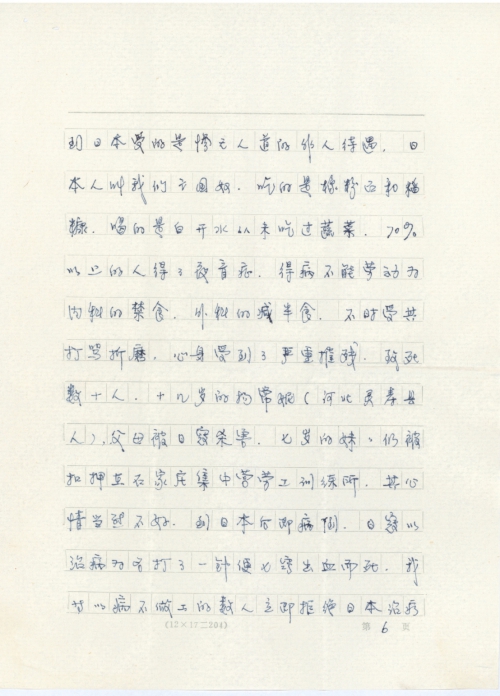 到日本受的是惨无人道的非人待遇. 日
本人叫我们亡国奴. 吃的是橡粉面和稻
糠. 喝的是白开水从未吃过蔬菜. 70%
以上的人得了夜盲症. 得病不能劳动为
内科的禁食. 外科的减半食. 不时受其
打骂折磨. 心身受到了严重摧残. 致死
数十人. 十几岁的 常 (河北灵寿县
人), 父母被日寇杀害. 七岁的妹妹仍被
扣押在石家庄集中营劳工训练所. 其心
情当然不好. 到日本后即病倒. 日寇以
治病为名打了一针便七窍出血而死. 我
等以病不做工的数人立即拒绝日本治疗
(12×17=204) 第 6 页